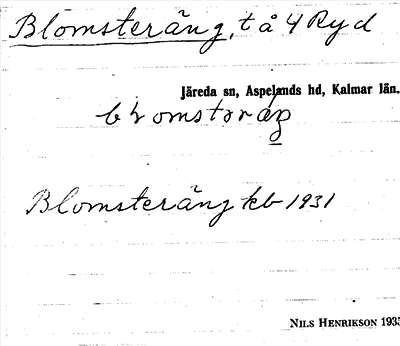 Blomsteräng, t å 4 Ryd
Järeda sn, Aspelands hd, Kalmar län.
Blomsteräng kb 1931
NILS HENRIKSON 1935